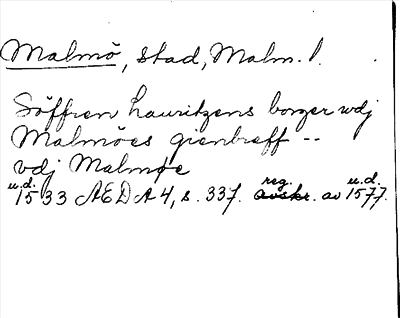 Malmö, stad, Malm. l.
Söffren Lauritzens borger wdj
Malmöes gienbreff --
vdj Malmøe
u.d. 1533 AEDA 4, s. 337. reg. avskr. av u.d. 1577.